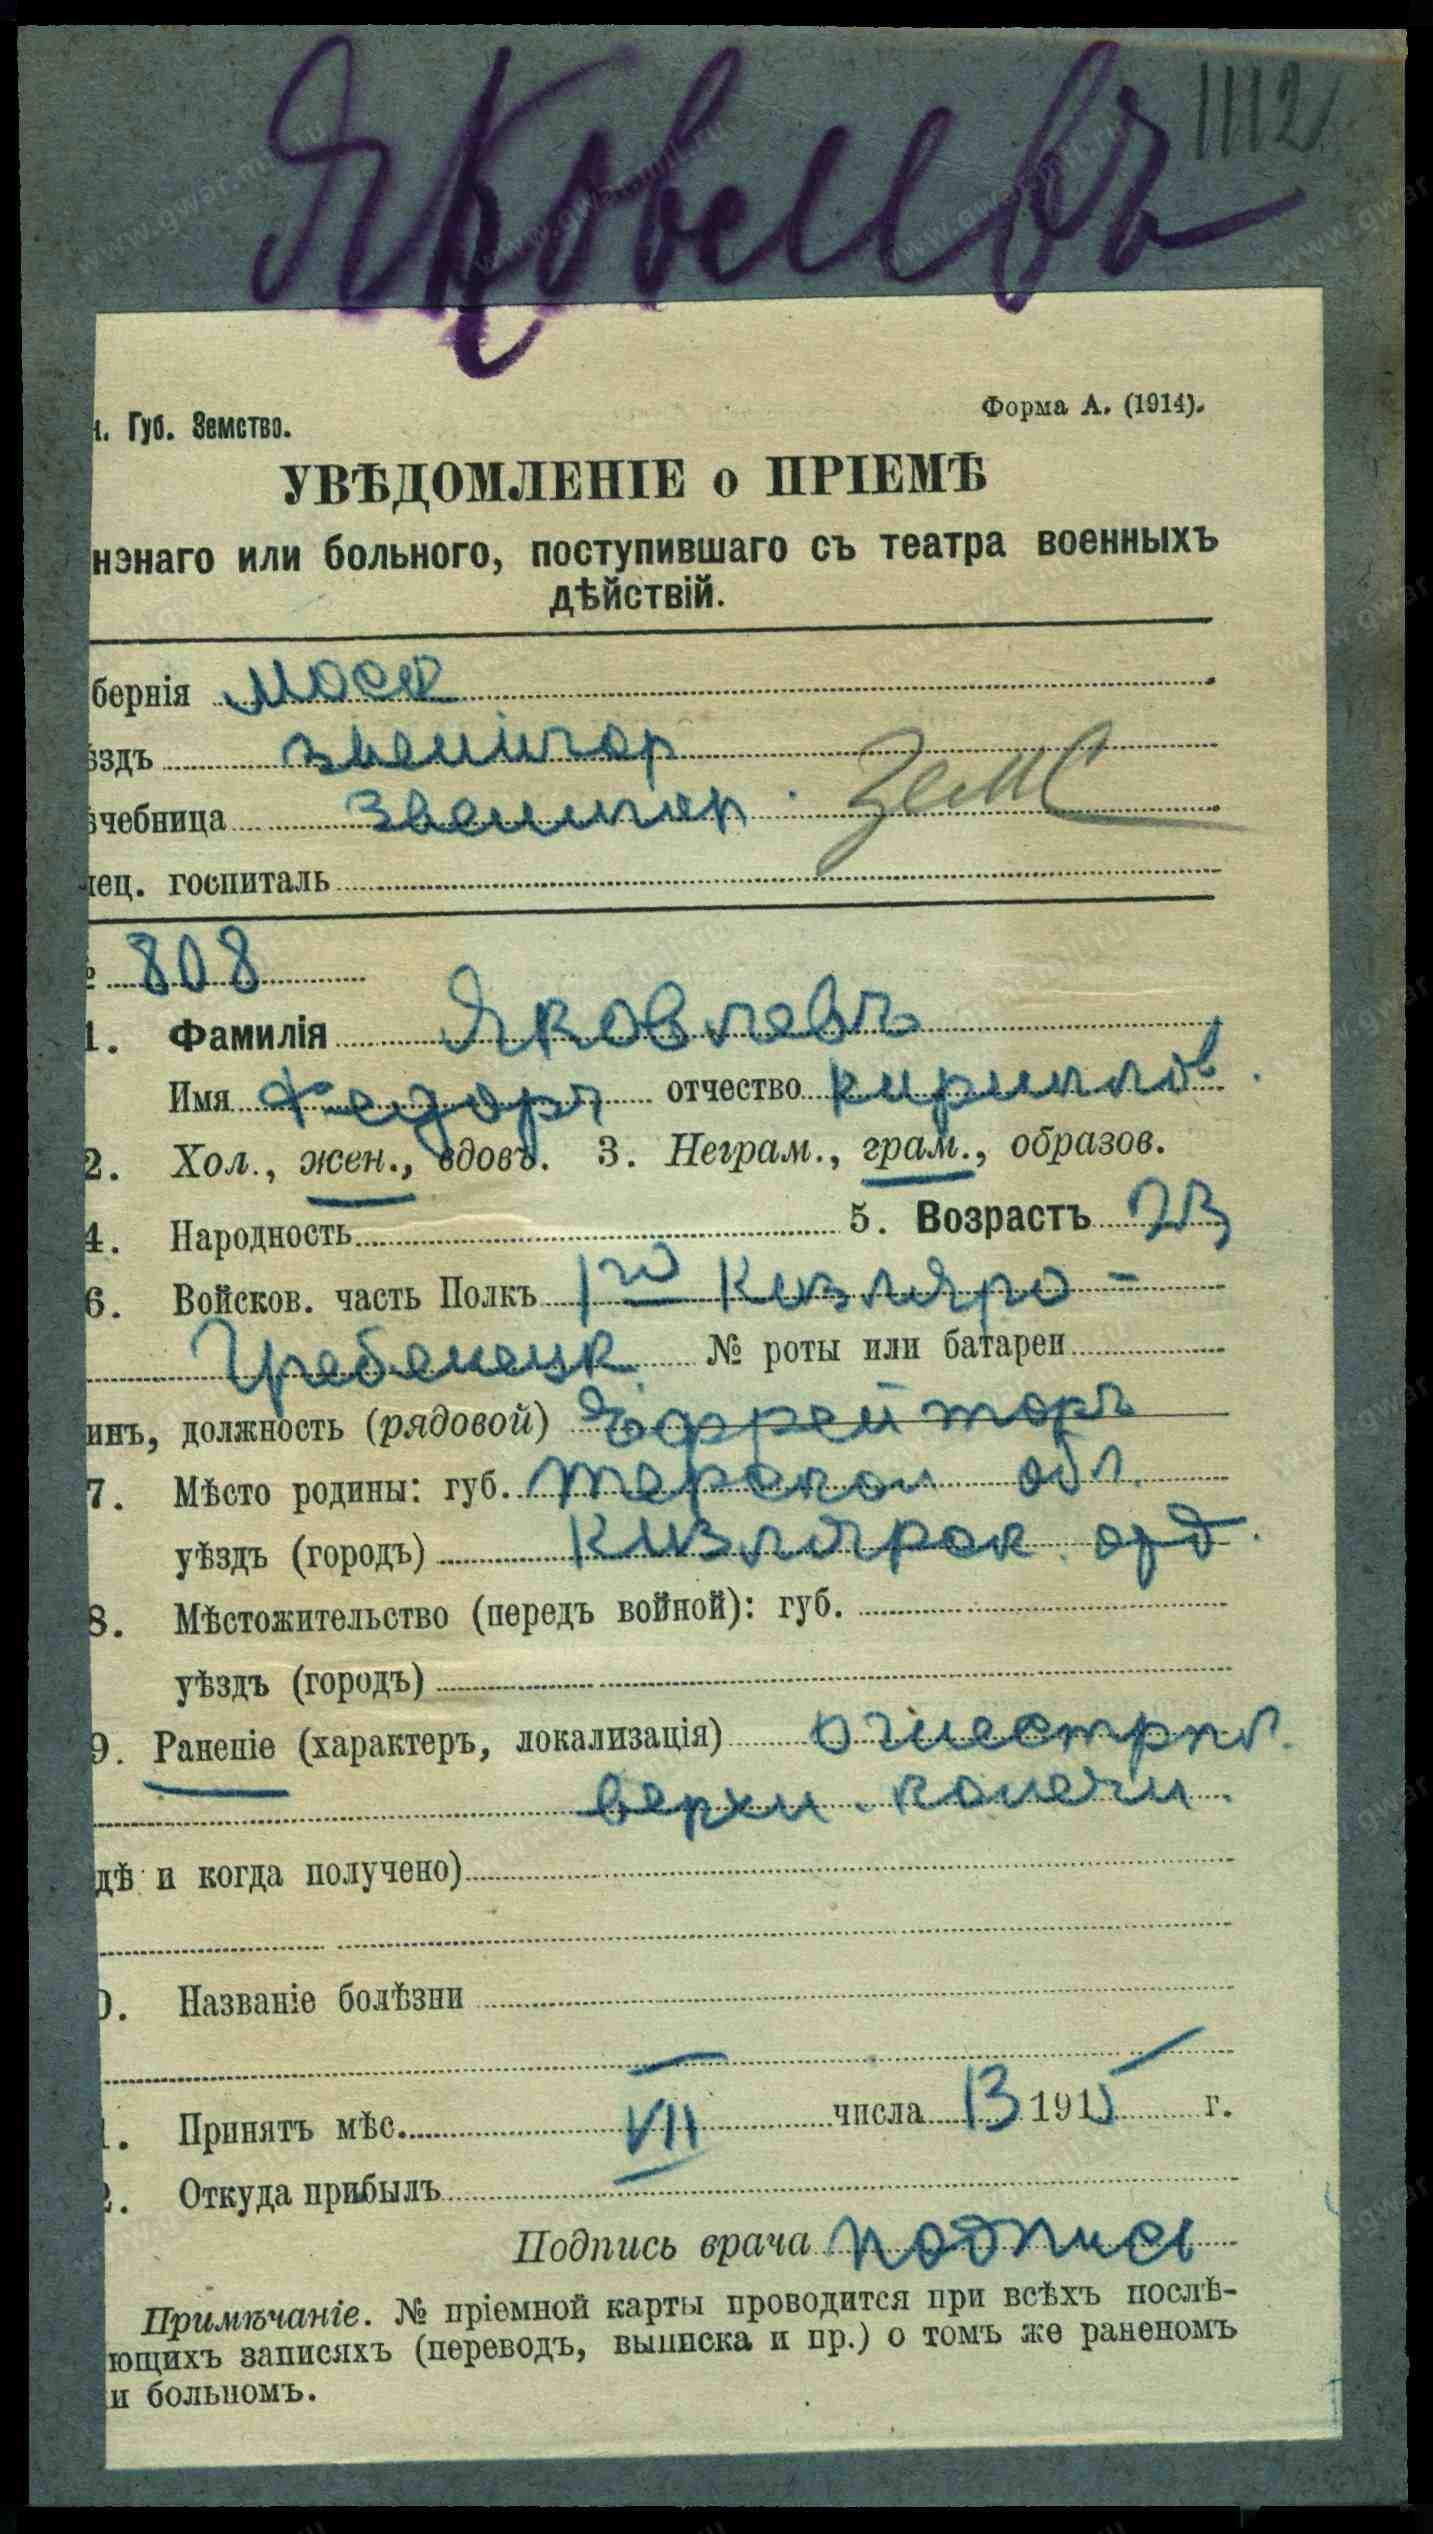 Яковлевъ 1112
н. Губ. Земство.
Форма А. (1914).
УВѢДОМЛЕНІЕ о ПРІЕМѢ
нэнаго или больного, поступившаго съ театра военныхъ
дѣйствій.
бернія Моск
ѣздъ звенигор
ѣчебница Звенигор. Земс
пец. госпиталь
№ 808
1. Фамилія Яковлевъ
Имя Федоръ отчество Кириллов.
2. Хол., жен., вдовъ. 3. Неграм., грам., образов.
4. Народность 5. Возрастъ 23
6. Войсков. часть Полкъ 1го Кизляро-
Гребенецк № роты или батареи
инъ, должность (рядовой) Ефрейторъ
7. Мѣсто родины: губ. Терской обл.
уѣздъ (городъ) Кизлярск. отд.
8. Мѣстожительство (передъ войной): губ.
уѣздъ (городъ)
9. Раненіе (характеръ, локализація) огнестрѣл.
верхн. конечн.
дѣ и когда получено)
0. Названіе болѣзни
1. Принятъ мѣс. VII числа 13 1915 г.
2. Откуда прибылъ
Подпись врача подпись
Примѣчаніе. № пріемной карты проводится при всѣхъ послѣ-
ющихъ записяхъ (переводъ, выписка и пр.) о томъ же раненомъ
и больномъ.
www.gwar.mil.ru